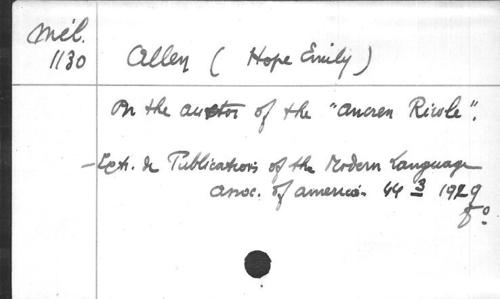 Mél.
1130
Allen ( Hope Emily )
On the author of the "Ancren Riwle".
- Extr. de Publications of the Modern Language
Assoc. of America. 44 3 1929
8°